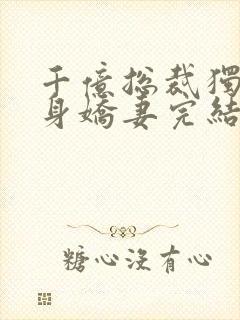 千億总裁獨
身嬌妻完結
糖心沒有心